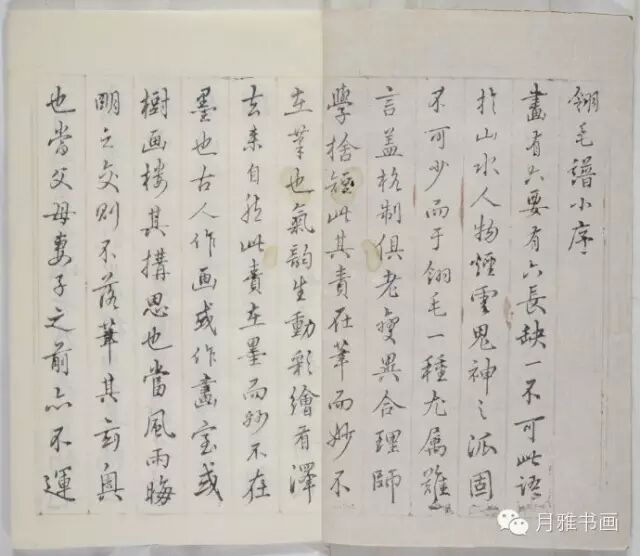 翎毛譜小序
畫有六要有六長缺一不可此語
於山水人物煙雲鬼神之派固
不可少而于翎毛一種尤属難
言盖格制俱老變異合理師
學捨短此其責在筆而妙不
在筆也氣韵生動彩繪有澤
去来自然此責在墨而妙不在
墨也古人作画或作畫室或
樹画楼其搆思也當風雨晦
明之交則不落筆其玄奧
也當父母妻子之前亦不運
月雅书画